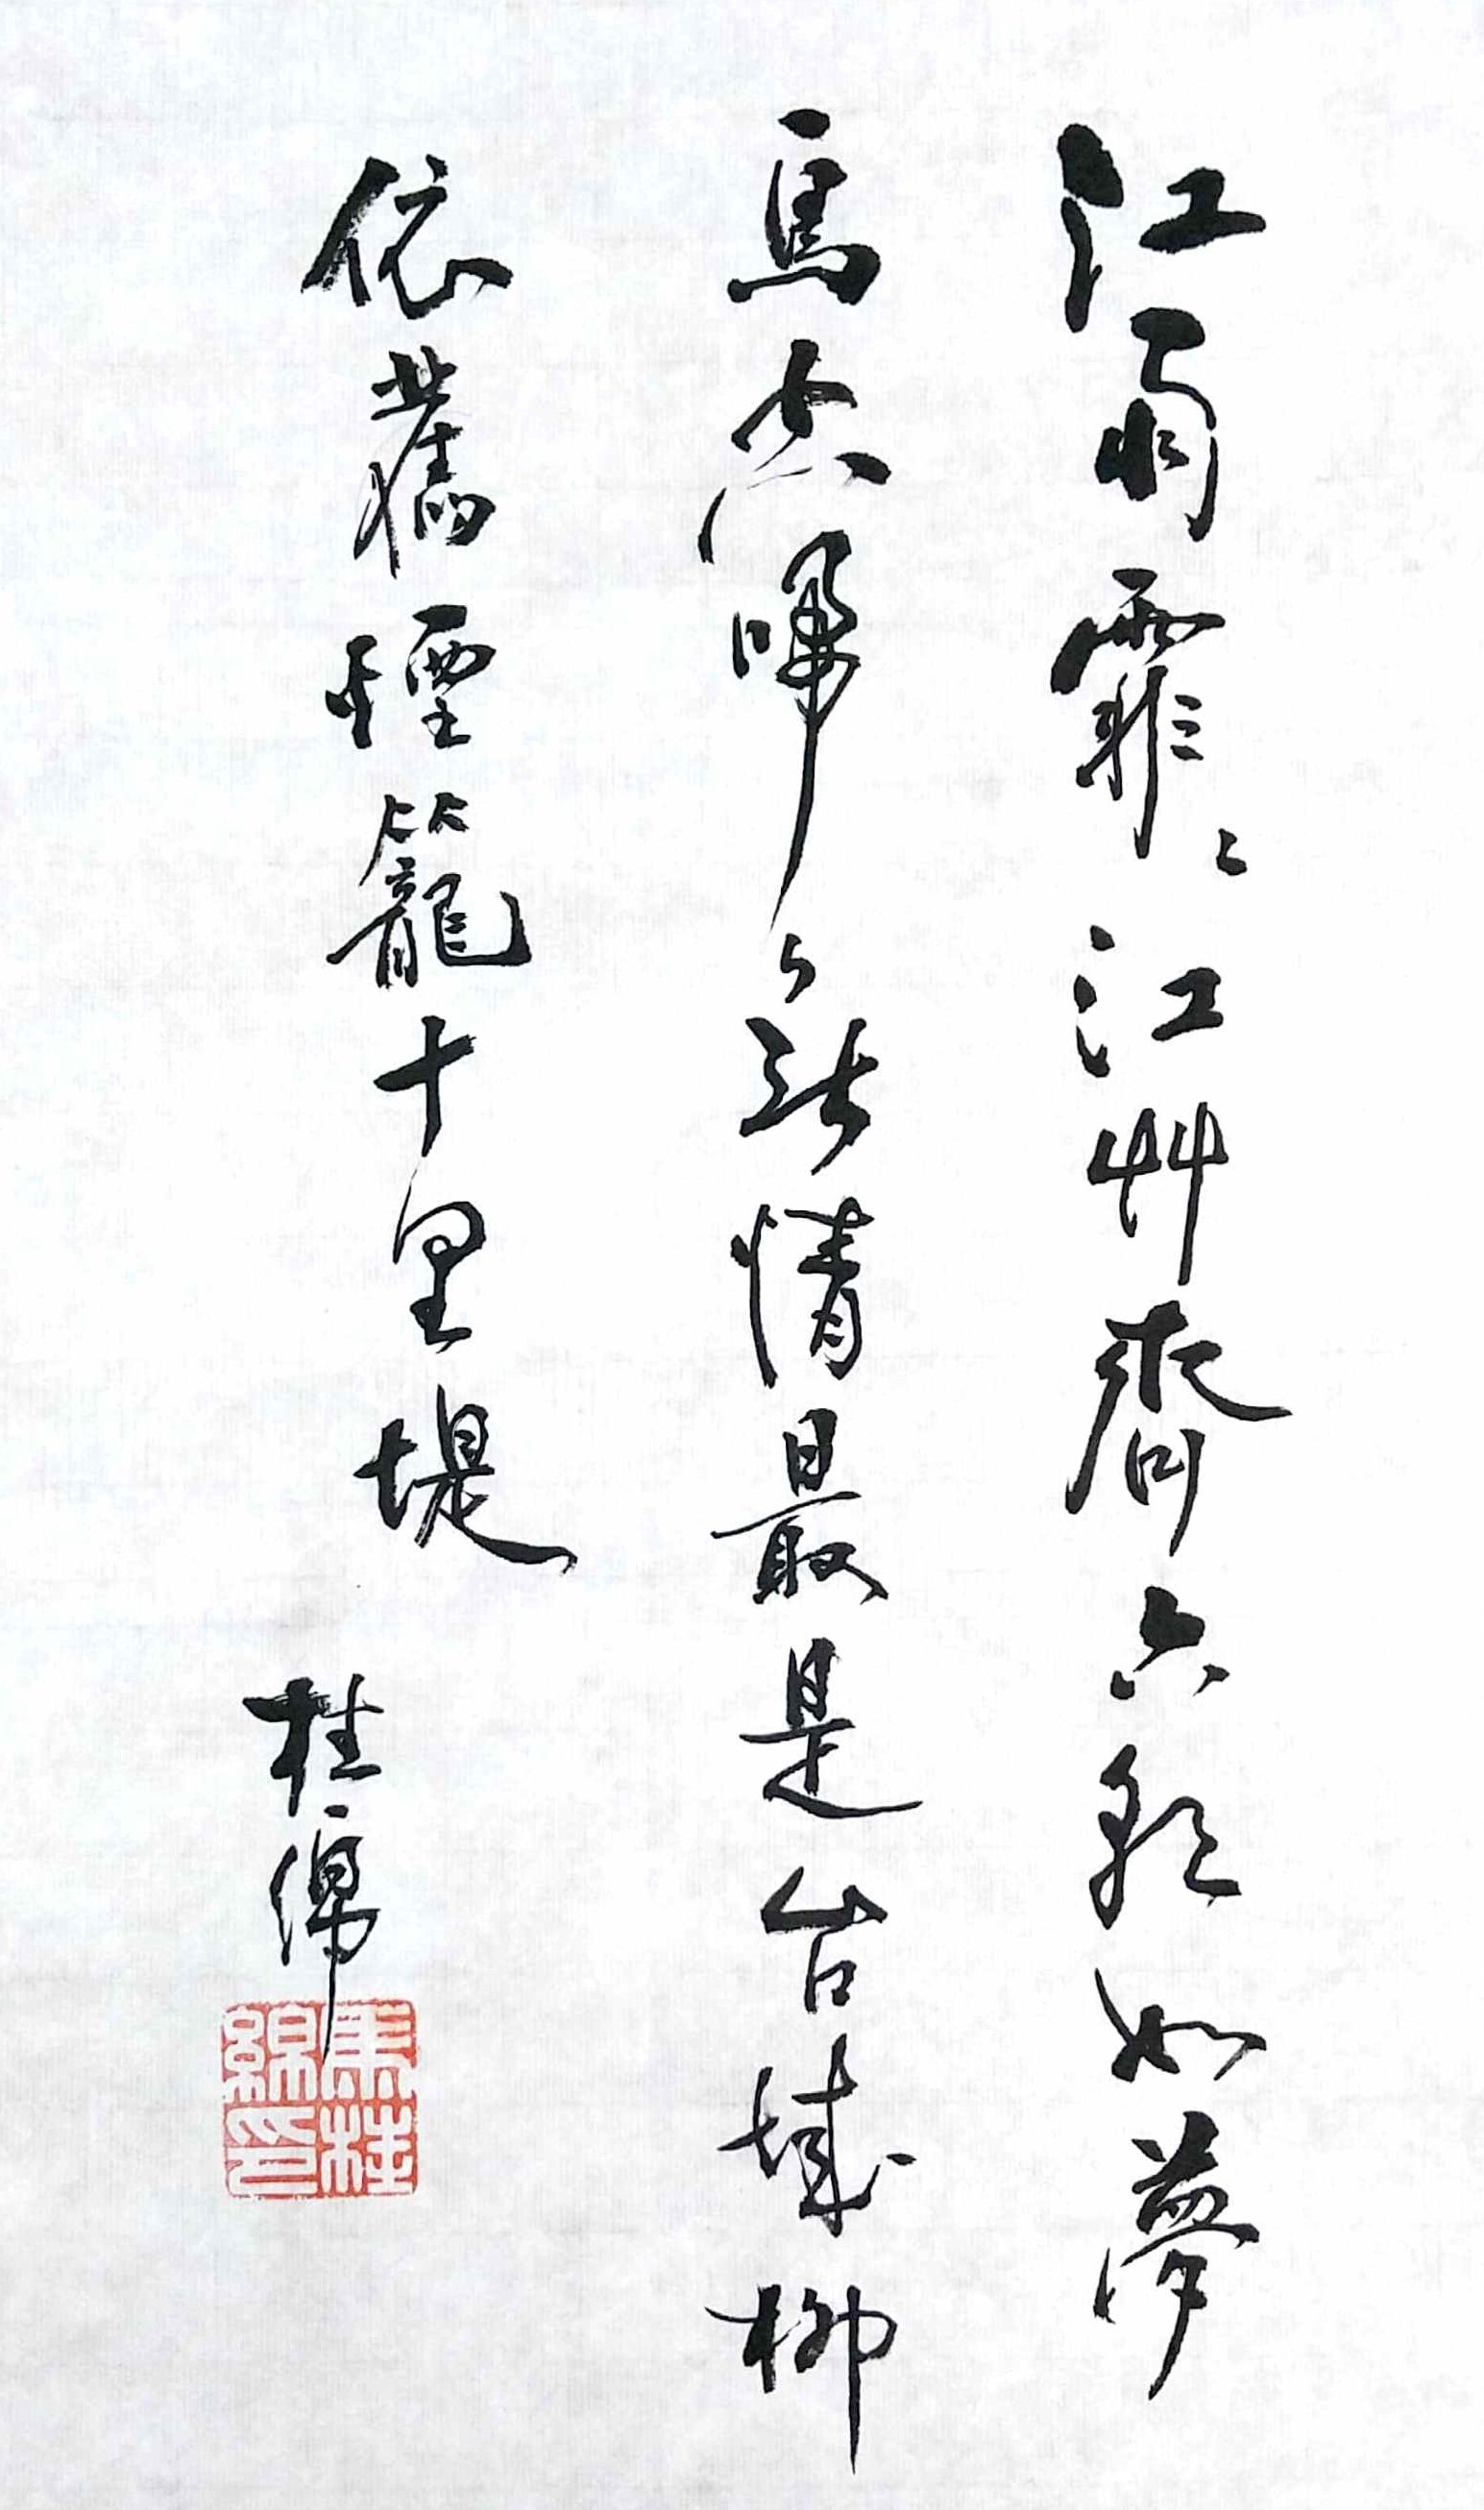 江雨霏〻江艸齊六朝如夢
鳥空啼〻無情最是台城柳
依舊煙籠十里堤
桂綿
桂
綿印